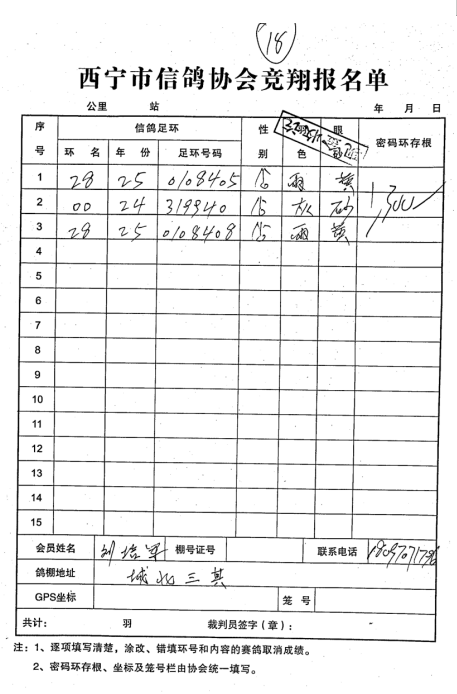 18
西宁市信鸽协会竞翔报名单
公里 站 年 月 日
序号 信鸽足环 性别 色 眼 密码环存根
环 名 年 份 足环号码
1 28 25 0108405 雨 黄
2 00 24 319940 灰 砂
3 28 25 0108408 雨 黄
4
5
6
7
8
9
10
11
12
13
14
15
会员姓名 刘培军 棚号证号 联系电话
鸽棚地址 城北三其
GPS坐标 笺 号
共计: 羽 裁判员签字(章):
注:1、逐项填写清楚,涂改、错填环号和内容的赛鸽取消成绩。
2、密码环存根、坐标及笺号栏由协会统一填写。